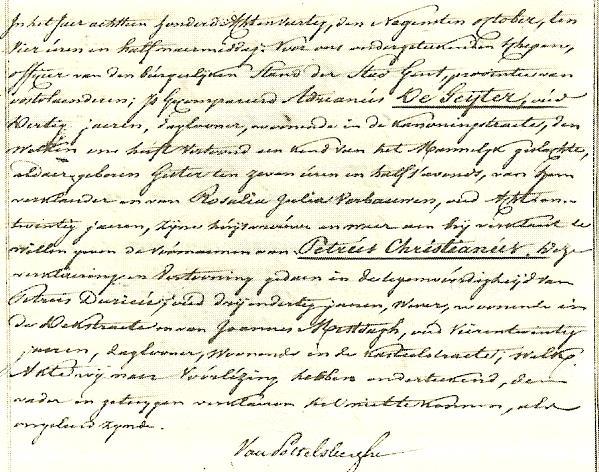 In het jaer achttien honderd Achtenveertig, den Negensten october, ten
vier uren en half naermiddag; Voor ons ondergeteekenden Schepen,
officier van den burgerlijken Stand der Stad Gent, provintie van
oostvlaenderen; Is Gecompareerd Adrianús De Geÿter, oúd
dertig jaeren, daglooner, woonende in de Kanonstraete, den
welken ons heeft Vertoond een kind van het Mannelyk geslachte,
aldaer geboren Gister ten zeven úren en half s'avonds, van hem
verklaerder en van Rosalia Julia Verbauwen, oud Achten-
twintig jaeren, zijne húijsvroúw en waer aen hij verklaert te
willen geven de Voórnaemen van Petrús Christianús. Deze
verklaering en Vertooning gedaen in de tegenwoórdigheijd van
Petrús, oúd drijendertig jaeren, Wever, woonende in
de en van Joannes, oud Vierentwintig
jaeren, daglooner, Woonende in de Kasteelstraete; welke
Akte wij naer Voórlezing hebben onderteekend, de
vader en getuygen verklaeren het niet te konnen, als
ongeleerd zynde.